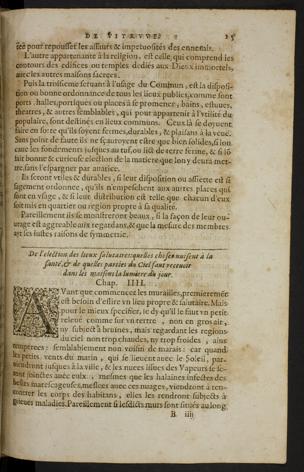 DE VITRVVE 25
tée pour repousser les assaux & impetuositez des ennemis.
L'autre appartenante à la religion, est celle, qui comprend les
contours des edifices ou temples dediés aux Dieux immortels,
auec les autres maisons sacrées.
Puis la troisieme seruant à l'usage du Commun, est la disposi-
tion ou bonne ordonnance de tous les lieux publics, comme sont
ports, halles, portiques ou places à se promener, bains, estuues,
theatres, & autres semblables, qui pour appartenir à l'utilité du
populaire, sont destinés en lieux communs. Ceux là se doyuent
faire en sorte qu'ils soyent fermes, durables, & plaisans à la veuë.
Sans point de faute ils ne sçauroyent estre que bien solides, si lon
caue les fondemens iusques au tuf, ou lict de terre ferme, & si lō
fait bonne & curieuse election de la matiere que lon y deura met-
tre, sans l'espargner par auarice.
Ils seront vtiles & durables, si leur disposition ou assiette est si
sagement ordonnee, qu'ils n'empeschent aux autres places qui
sont en vsage, & si leur distribution est telle que chacun d'eux
soit mis en quartier ou region propre à sa qualité.
Pareillement ils se monstreront beaux, si la façon de leur ou-
urage est aggreable aux regardans, & que la mesure des membres
ayt les iustes raisons de symmetrie.
De l'election des lieux salutaires: quelles choses nuisent à la
santé, & de quelles parties du Ciel faut receuoir
dans les maisons la lumiere du iour.
Chap. IIII.
AVant que commencer les murailles, premierement
est besoin d'eslire vn lieu propre & salutaire. Mais
pour le mieux specifier, ie dy qu'il le faut vn petit
releué comme sur vn tertre, non en gros air,
ny subiect à bruines, mais regardant les regions
du ciel non trop chaudes, ny trop froides, ains
temperees: semblablement non voisin de marais: car quand
les petits vents du matin, qui se lieuent auec le Soleil, par-
uiendront iusques à la ville, & les nuees issues des Vapeurs se se-
ront iointes auec eulx, mesmes que les halaines infectes des
bestes marescageuses, meslees auec ces nuages, viendront à ren-
contrer les corps des habitans, elles les rendront subiects à
griefues maladies. Pareillement si lesdicts murs sont situés au long
B iiij